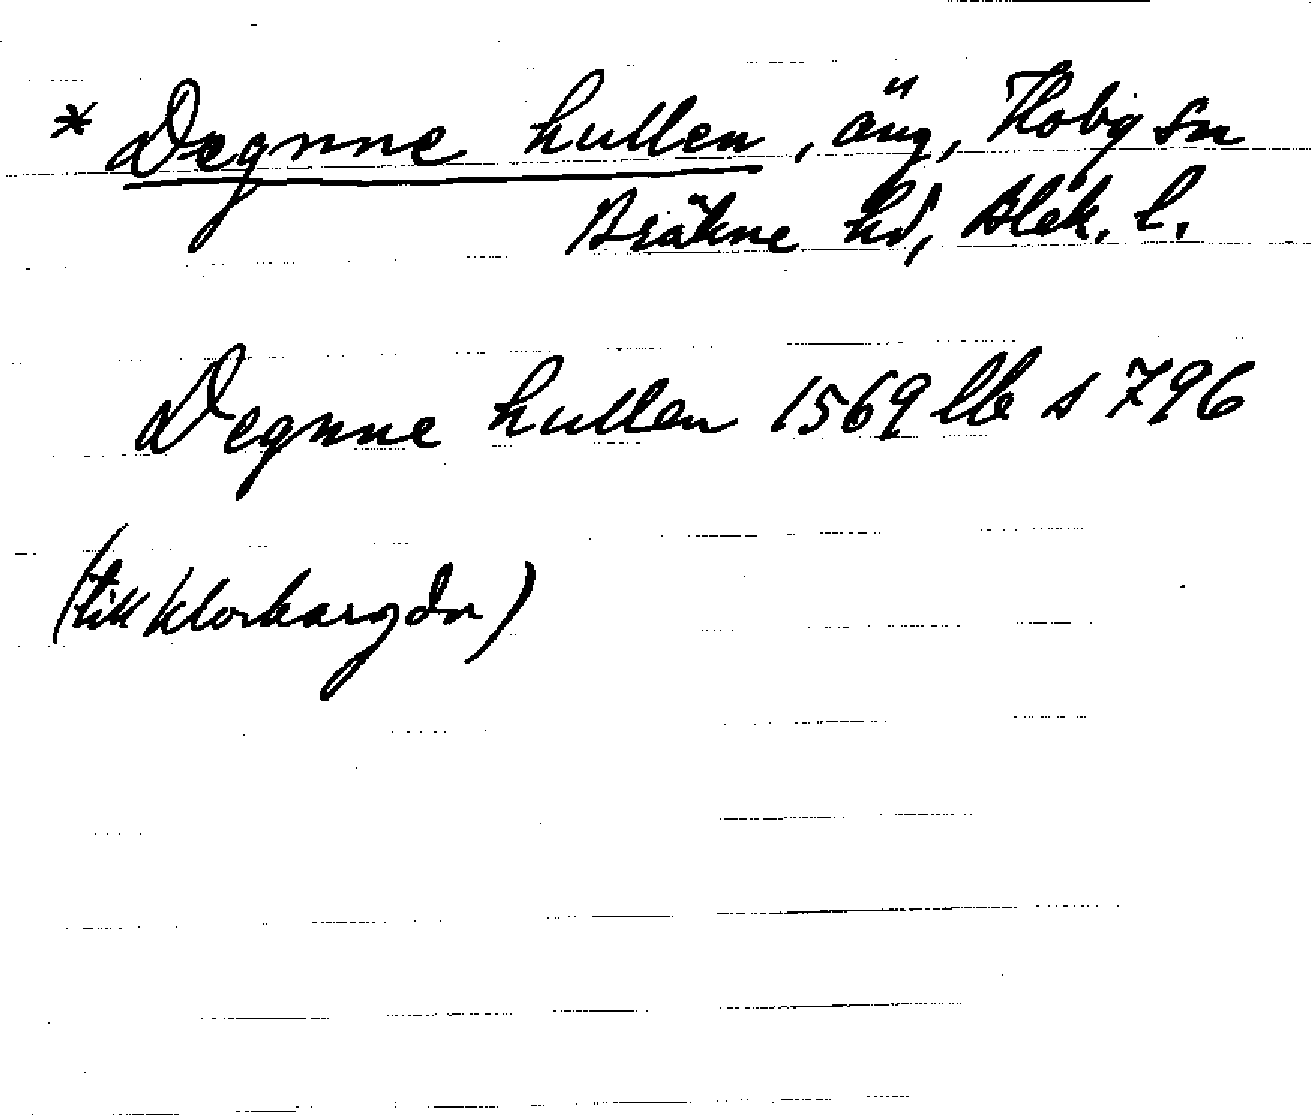 * Degnne hullen, äng, Hoby sn
Bräkne hd, Blek. l.
Degnne hullen 1569 lb s 796
(till klockargdn)